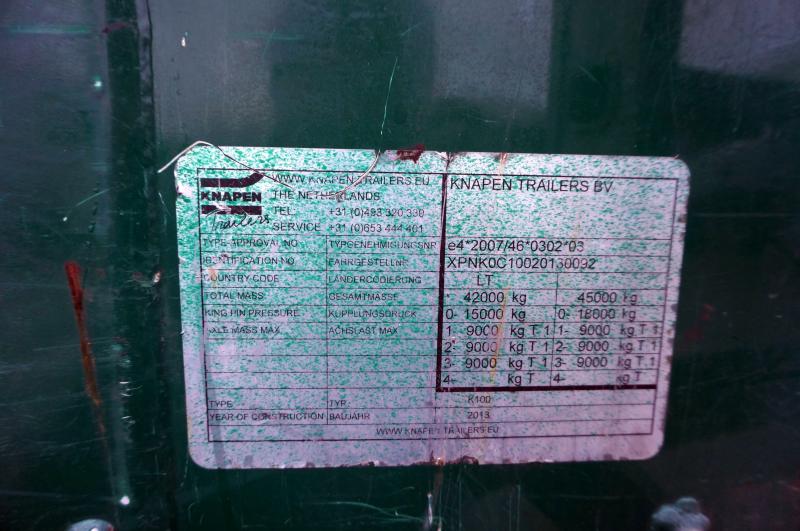 KNAPEN Trailers
WWW.KNAPEN-TRAILERS.EU
THE NETHERLANDS
TEL. +31 (0)493 320 330
SERVICE +31 (0)653 444 461
KNAPEN TRAILERS BV
TYPE-APPROVAL NO TYPGENEHMIGUNGSNR e4*2007/46*0302*03
IDENTIFICATION NO FAHRGESTELLNR XPNK0C10020130092
COUNTRY-CODE LÄNDERCODIERUNG LT
TOTAL MASS GESAMTMASSE - 42000 kg 45000 kg
KING PIN PRESSURE KUPPLUNGSDRUCK 0- 15000 kg 0- 18000 kg
AXLE MASS MAX ACHSLAST MAX 1- 9000 kg T 1 1- 9000 kg T 1
2- 9000 kg T 1 2- 9000 kg T 1
3- 9000 kg T 1 3- 9000 kg T 1
4- kg T 4- kg T
TYPE TYP K100
YEAR OF CONSTRUCTION BAUJAHR 2013
WWW.KNAPEN-TRAILERS.EU